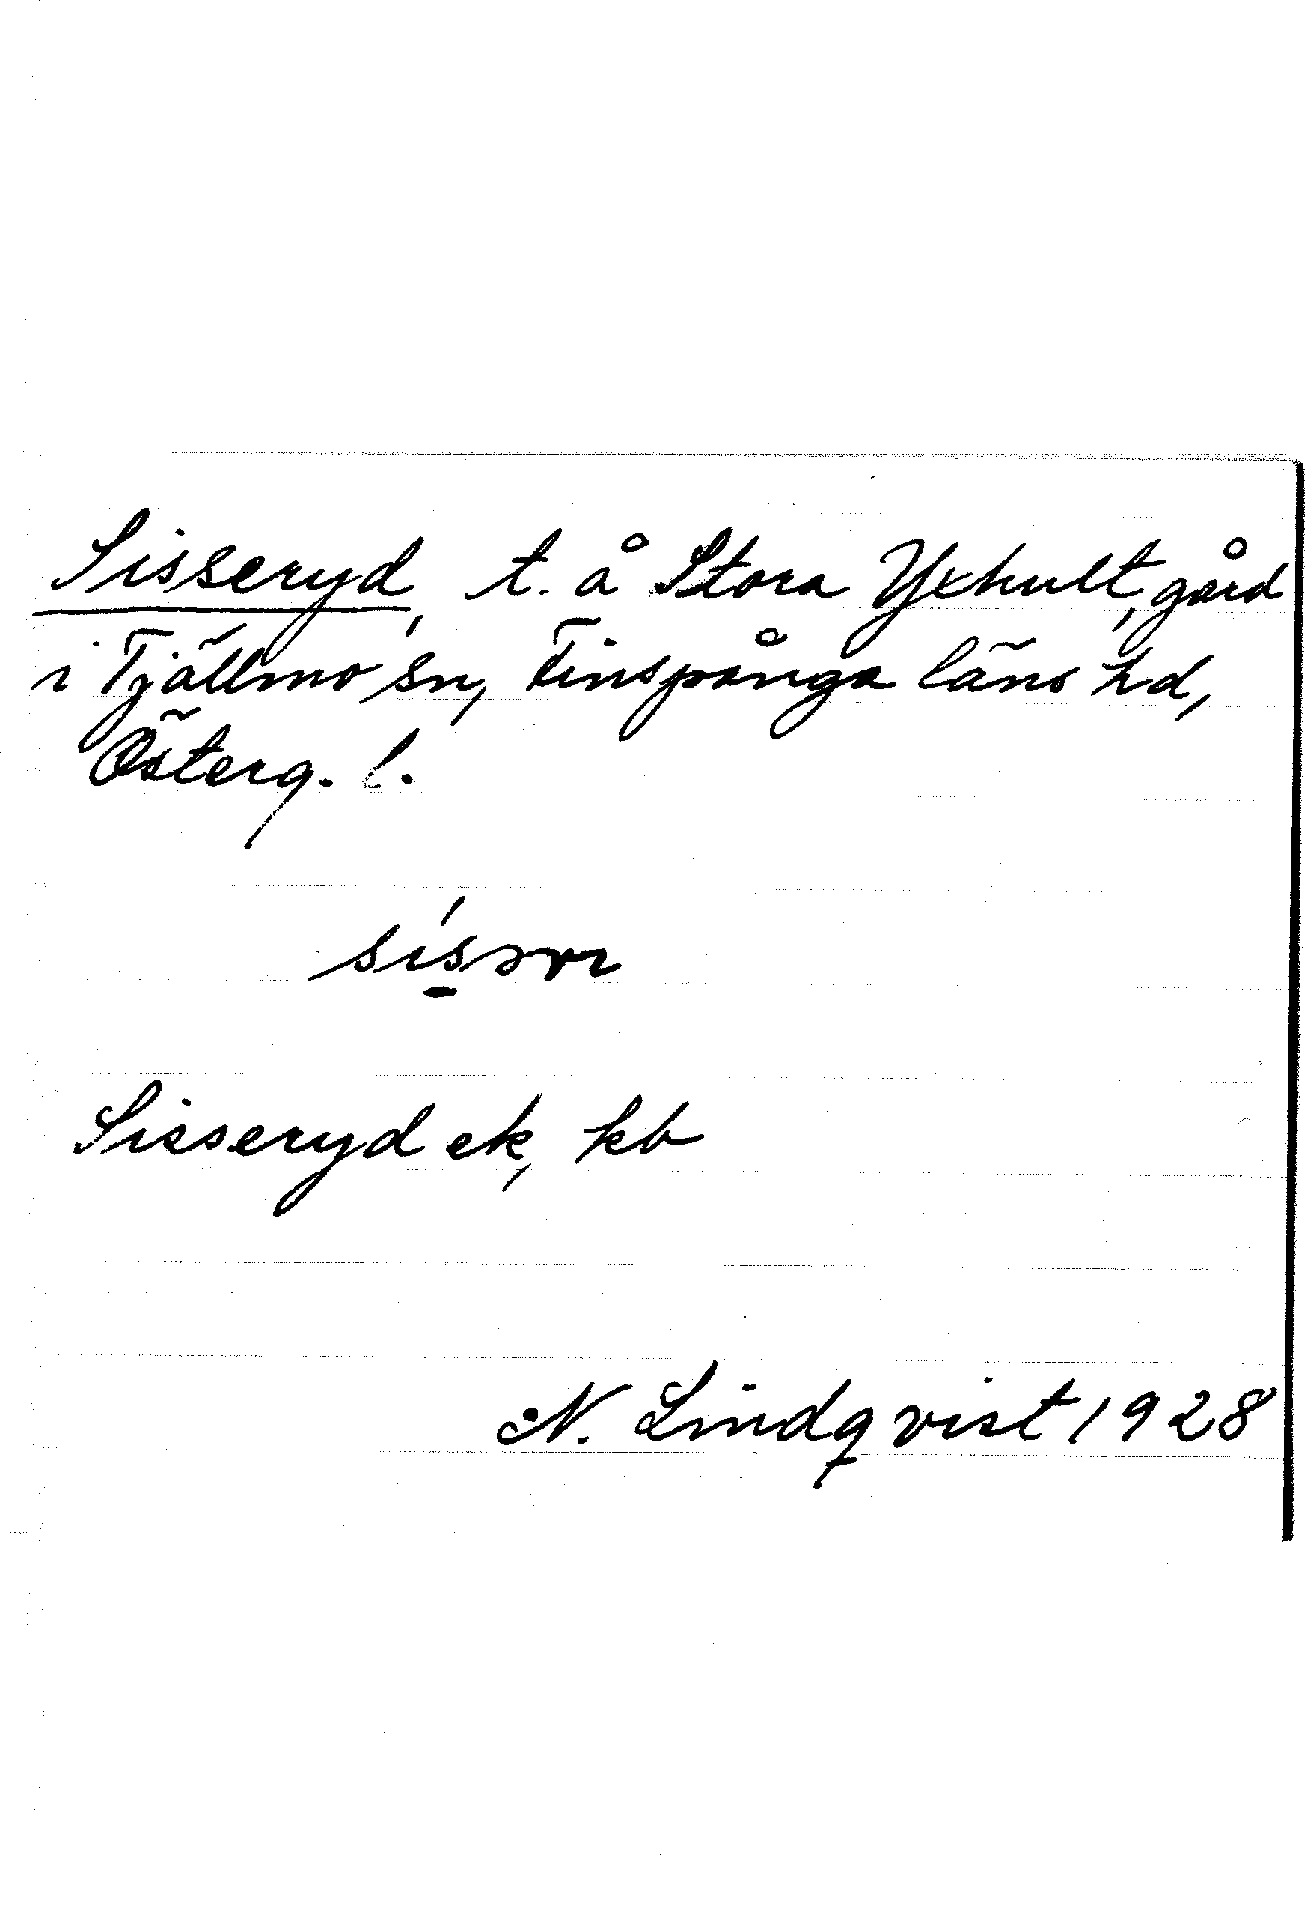 Sisseryd, t. å Stora Yxhult, gård
i Tjällmo sn, Finspånga läns hd,
Österg. l.
Sisseryd ek, kb
N. Lindqvist 1928